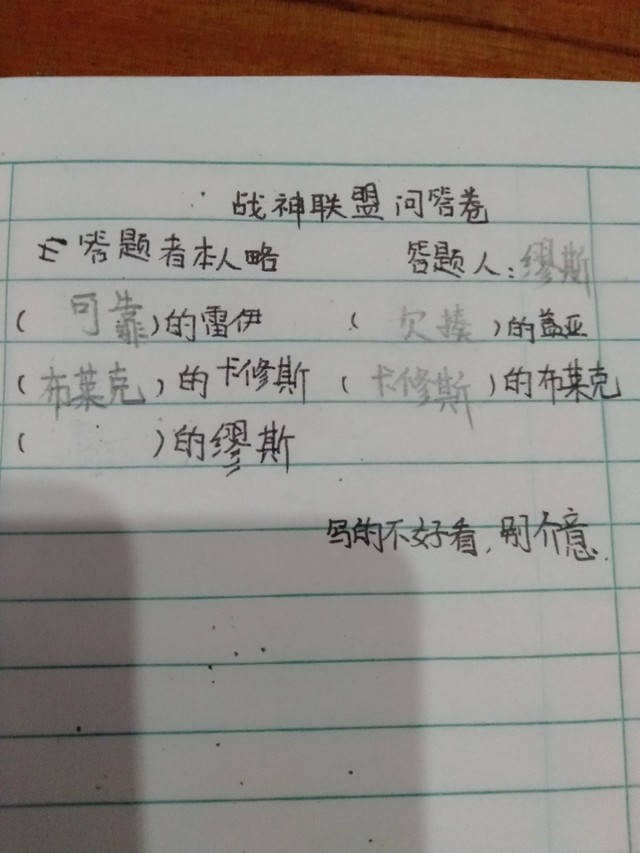 战神联盟问答卷
答题者本人略 答题人:缪斯
(可靠)的雷伊 (欠揍)的盖亚
(布莱克)的卡修斯 (卡修斯)的布莱克
( )的缪斯
写的不好看,别介意.